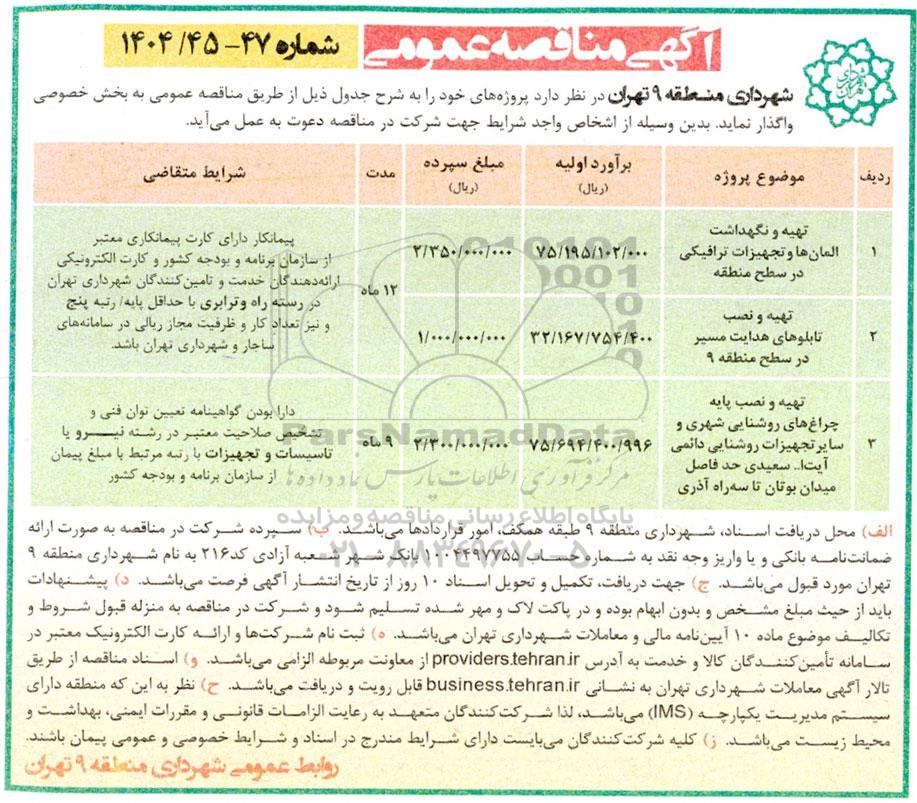 آگهی مناقصه عمومی
شماره ۴۷-۴۵/ ۱۴۰۴
شهرداری تهران
شهرداری منطقه ۹ تهران در نظر دارد پروژه‌های خود را به شرح جدول ذیل از طریق مناقصه عمومی به بخش خصوصی
واگذار نماید. بدین وسیله از اشخاص واجد شرایط جهت شرکت در مناقصه دعوت به عمل می‌آید.
ردیف
موضوع پروژه
برآورد اولیه
(ریال)
مبلغ سپرده
(ریال)
مدت
شرایط متقاضی
۱
تهیه و نگهداشت
المان‌ها و تجهیزات ترافیکی
در سطح منطقه
۷۵/۱۹۵/۱۰۲/۰۰۰
۲/۳۵۰/۰۰۰/۰۰۰
۱۲ ماه
پیمانکار دارای کارت پیمانکاری معتبر
از سازمان برنامه و بودجه کشور و کارت الکترونیکی
ارائه‌دهندگان خدمت و تامین‌کنندگان شهرداری تهران
در رسته راه وترابری با حداقل پایه/ رتبه پنج
و نیز تعداد کار و ظرفیت مجاز ریالی در سامانه‌های
ساجار و شهرداری تهران باشد.
۲
تهیه و نصب
تابلوهای هدایت مسیر
در سطح منطقه ۹
۳۲/۱۶۷/۷۵۴/۴۰۰
۱/۰۰۰/۰۰۰/۰۰۰
۳
تهیه و نصب پایه
چراغ‌های روشنایی شهری و
سایر تجهیزات روشنایی دائمی
آیت‌ا.. سعیدی حد فاصل
میدان بوتان تا سه‌راه آذری
۷۵/۶۹۴/۴۰۰/۹۹۶
۲/۳۰۰/۰۰۰/۰۰۰
۹ ماه
دارا بودن گواهینامه تعیین توان فنی و
تشخیص صلاحیت معتبر در رشته نیرو یا
تاسیسات و تجهیزات با رتبه مرتبط با مبلغ پیمان
از سازمان برنامه و بودجه کشور
ParsNamadData
مرکز فرآوری اطلاعات پارس نماد داده‌ها
پایگاه اطلاع رسانی مناقصه و مزایده
۰۲۱-۸۸۳۴۹۶۷۰-۵
الف) محل دریافت اسناد، شهرداری منطقه ۹ طبقه همکف، امور قراردادها می‌باشد. ب) سپرده شرکت در مناقصه به صورت ارائه
ضمانت‌نامه بانکی و یا واریز وجه نقد به شماره حساب ۱۰۰۴۴۹۷۷۵۵ بانک شهر شعبه آزادی کد۲۱۶ به نام شهرداری منطقه ۹
تهران مورد قبول می‌باشد. ج) جهت دریافت، تکمیل و تحویل اسناد ۱۰ روز از تاریخ انتشار آگهی فرصت می‌باشد. د) پیشنهادات
باید از حیث مبلغ مشخص و بدون ابهام بوده و در پاکت لاک و مهر شده تسلیم شود و شرکت در مناقصه به منزله قبول شروط و
تکالیف موضوع ماده ۱۰ آیین‌نامه مالی و معاملات شهرداری تهران می‌باشد. ه) ثبت نام شرکت‌ها و ارائه کارت الکترونیک معتبر در
سامانه تأمین‌کنندگان کالا و خدمت به آدرس providers.tehran.ir از معاونت مربوطه الزامی می‌باشد. و) اسناد مناقصه از طریق
تالار آگهی معاملات شهرداری تهران به نشانی business.tehran.ir قابل رویت و دریافت می‌باشد. ح) نظر به این که منطقه دارای
سیستم مدیریت یکپارچه (IMS) می‌باشد، لذا شرکت‌کنندگان متعهد به رعایت الزامات قانونی و مقررات ایمنی، بهداشت و
محیط زیست می‌باشد. ز) کلیه شرکت‌کنندگان می‌بایست دارای شرایط مندرج در اسناد و شرایط خصوصی و عمومی پیمان باشند.
روابط عمومی شهرداری منطقه ۹ تهران